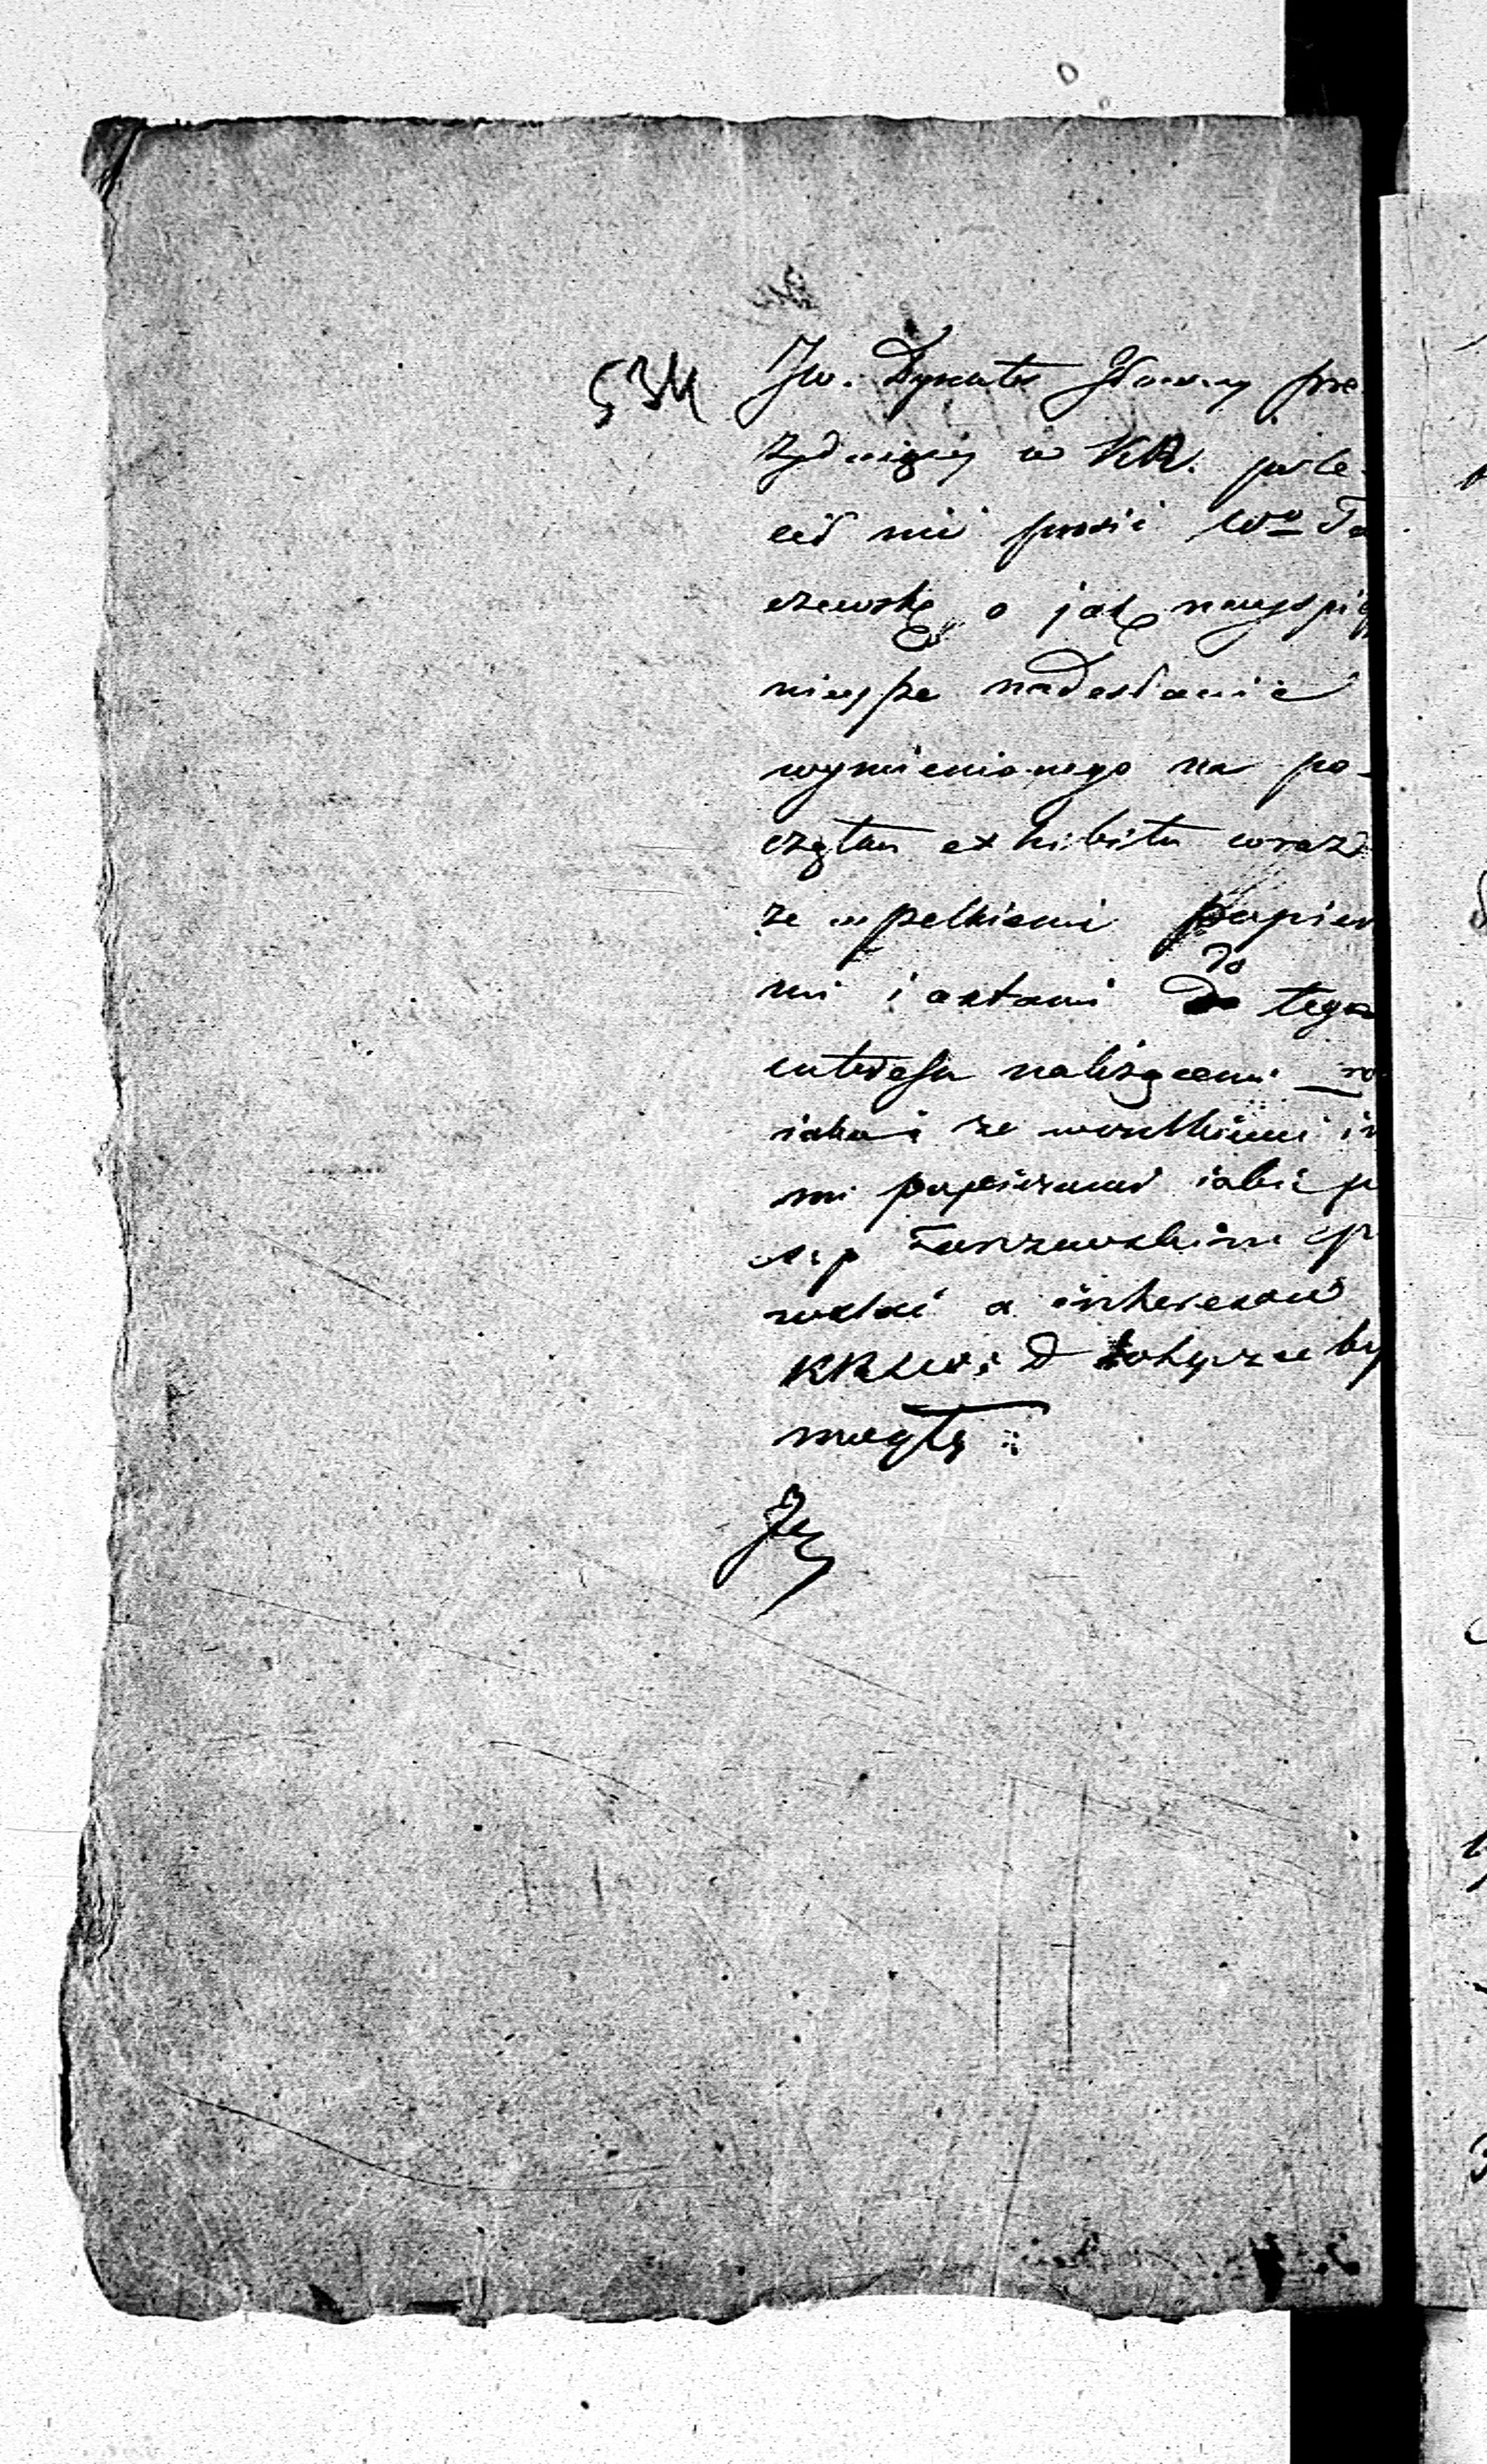 534 JW. Dyrektor Główny pre-
zyduiący w KR. pole-
cił mi prosić W° Ta
czewską o jak nayspie
nieysze nadesłanie
wymienionego na po-
czątku exhibitu wraz
ze wszelkiemi papier
mi i aktami do tego
interesu należącemi
iako i ze wszelkiemi in
mi papierami iakie p
s. p
wstać a interesów
potrzebne by
mogły